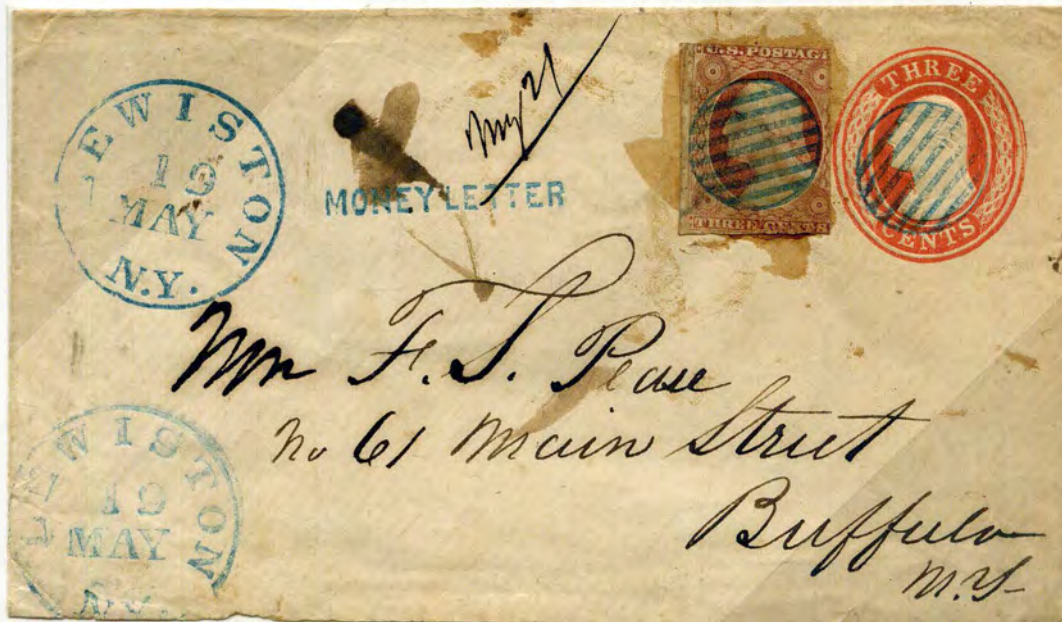 LEWISTON
19
MAY
N.Y.
May 21
MONEY LETTER
U.S. POSTAGE
THREE CENTS
THREE
CENTS
Mm F. S. Pease
No 61 Main Street
Buffalo
N.Y.
LEWISTON
19
MAY
N.Y.